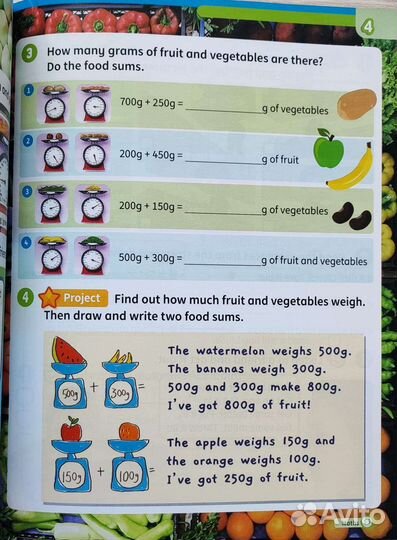 4
3 How many grams of fruit and vegetables are there?
Do the food sums.
1 700g + 250g = ____________ g of vegetables
2 200g + 450g = ____________ g of fruit
3 200g + 150g = ____________ g of vegetables
4 500g + 300g = ____________ g of fruit and vegetables
4 Project Find out how much fruit and vegetables weigh.
Then draw and write two food sums.
500g + 300g =
The watermelon weighs 500g.
The bananas weigh 300g.
500g and 300g make 800g.
I've got 800g of fruit!
150g + 100g =
The apple weighs 150g and
the orange weighs 100g.
I've got 250g of fruit.
Maths
Avito